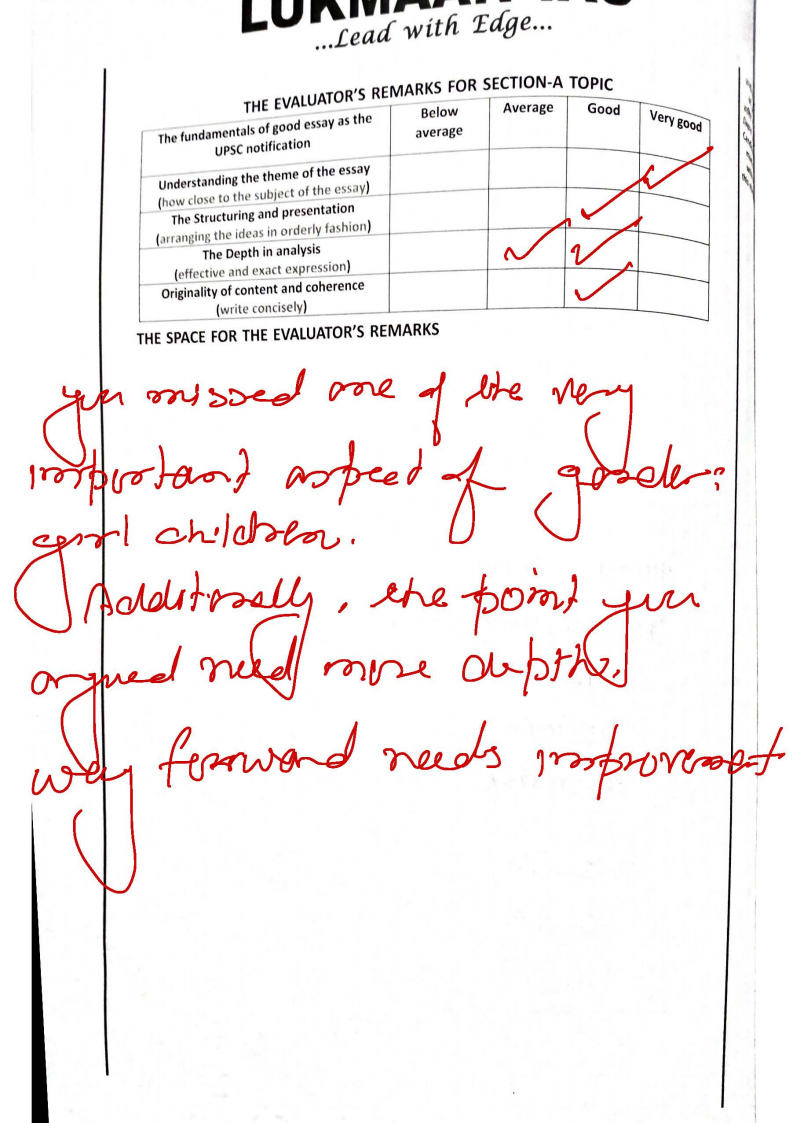 LUKMAAN IAS
...Lead with Edge...
THE EVALUATOR'S REMARKS FOR SECTION-A TOPIC
The fundamentals of good essay as the UPSC notification
Below average
Average
Good
Very good
Understanding the theme of the essay
(how close to the subject of the essay)
The Structuring and presentation
(arranging the ideas in orderly fashion)
The Depth in analysis
(effective and exact expression)
Originality of content and coherence
(write concisely)
THE SPACE FOR THE EVALUATOR'S REMARKS
you missed one of the very
important aspect of gender:
girl children.
Additionally, the point you
argued need more depth.
way forward needs improvement